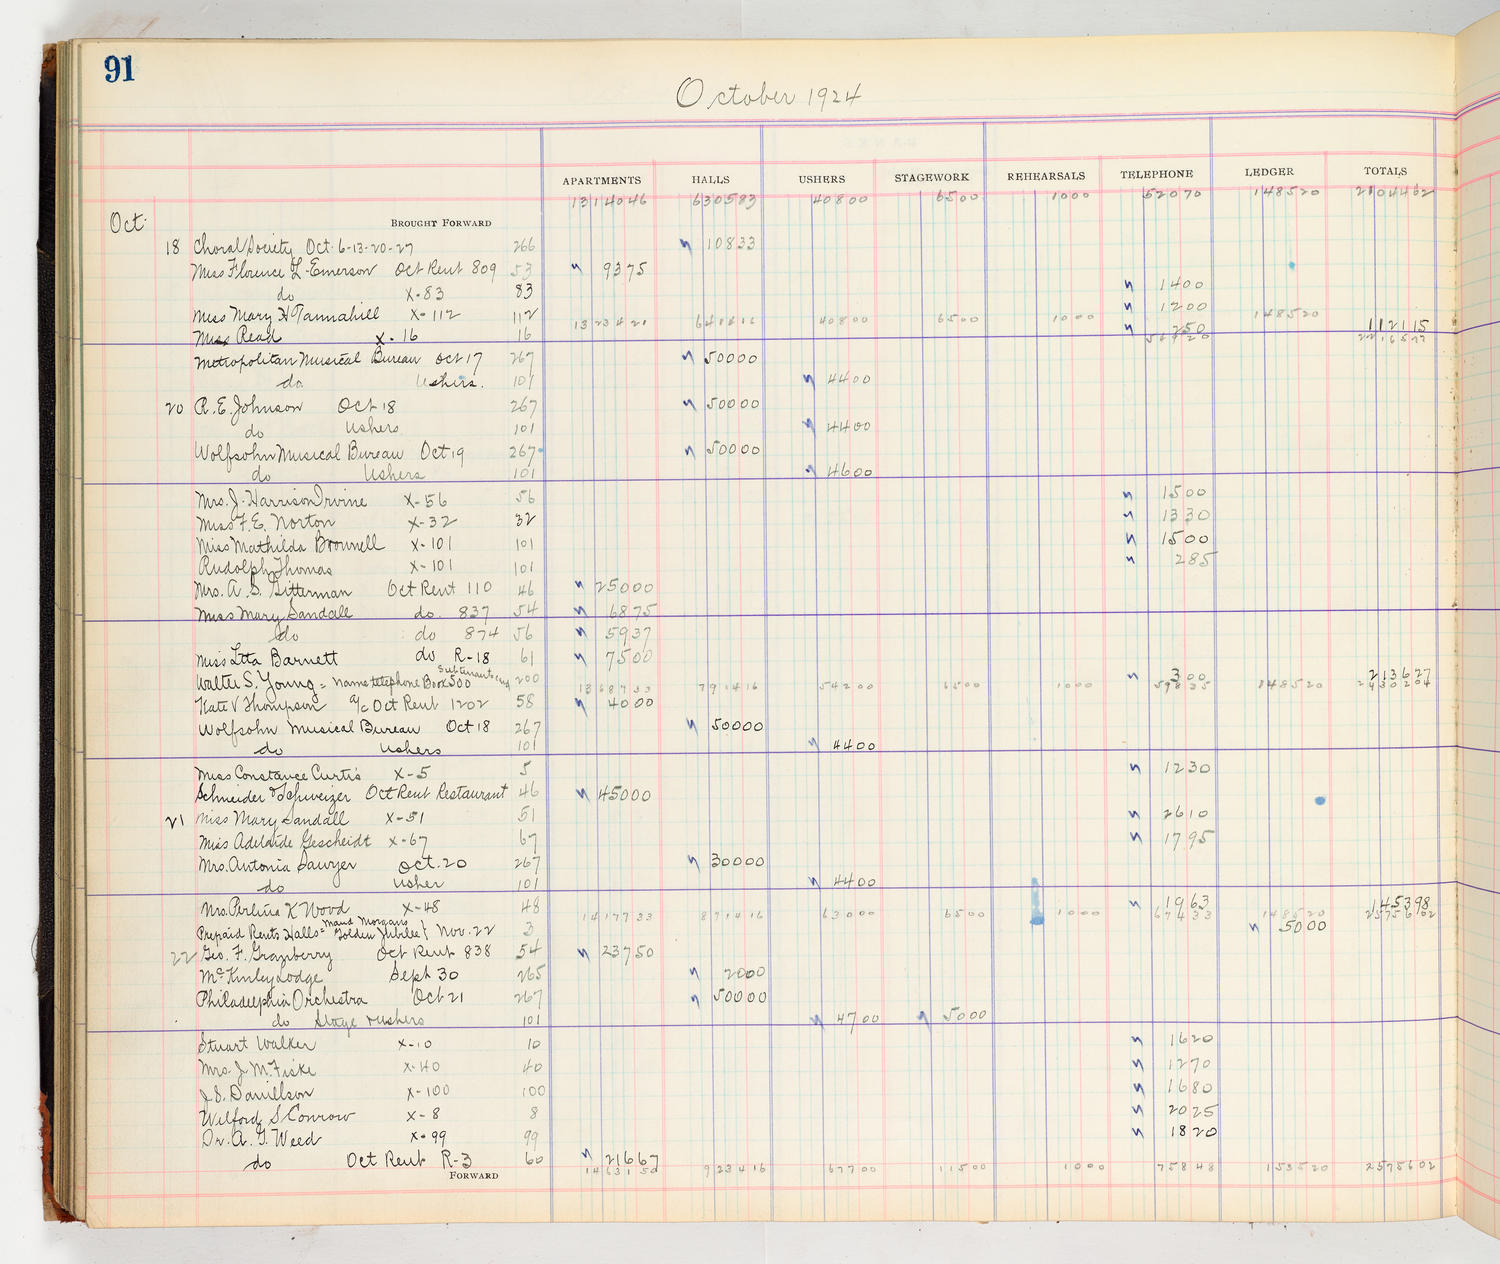 91
October 1924
APARTMENTS HALLS USHERS STAGEWORK REHEARSALS TELEPHONE LEDGER TOTALS
1314046 630583 40800 6500 1000 52070 148520 2104462
Oct. BROUGHT FORWARD
18 Choral Society Oct. 6-13-20-27 266 10833
Miss Florence L. Emerson Oct Rent 809 53 9375
do X-83 83 1400
Miss Mary H Tannahill X-112 112 1200
1323421 641416 40800 6500 1000 148520 112115
Miss Read X-16 16 250
56920 2216577
Metropolitan Musical Bureau Oct 17 267 50000
do Ushers. 101 4400
20 R. E. Johnson Oct 18 267 50000
do Ushers 101 4400
Wolfsohn Musical Bureau Oct 19 267 50000
do Ushers 101 4600
Mrs. J. Harrison Irvine X-56 56 1500
Miss F. E. Norton X-32 32 1330
Miss Mathilda Brownell X-101 101 1500
Rudolph Thomas X-101 101 285
Mrs. A. S. Gitterman Oct Rent 110 46 25000
Miss Mary Sandall do. 837 54 6875
do do 874 56 5937
Miss Etta Barnett do R-18 61 7500
Walter S. Young = name telephone Book 500 200 300 213627
1368733 791416 54200 6500 1000 59835 148520 2430204
Kate V Thompson a/c Oct Rent 1202 58 4000
Wolfsohn Musical Bureau Oct 18 267 50000
do Ushers 101 4400
Miss Constance Curtis X-5 5 1230
Schneider & Schweizer Oct Rent Restaurant 46 45000
21 Miss Mary Sandall X-51 51 2610
Miss Adelaide Gescheidt X-67 67 1795
Mrs. Antonia Sawyer Oct. 20 267 30000
do Usher 101 4400
Mrs. Perlina K Wood X-48 48 1963 145398
1417733 871416 63000 6500 1000 67433 148520 2575602
Maud Morgans
Prepaid Rents Halls = Golden Jubilee } Nov. 22 3 5000
22 Geo. F. Granberry Oct Rent 838 54 23750
McKinley Lodge Sept 30 265 2000
Philadelphia Orchestra Oct 21 267 50000
do Stage & ushers 101 4700 5000
Stuart Walker X-10 10 1620
Mrs. J. M. Fiske X-40 40 1270
J. S. Danielson X-100 100 1680
Wilford S Conrow X-8 8 2025
Dr. A. J. Weed X-99 99 1820
do Oct Rent R-3 60 21667
FORWARD 1463150 923416 67700 11500 1000 75848 153520 2575602